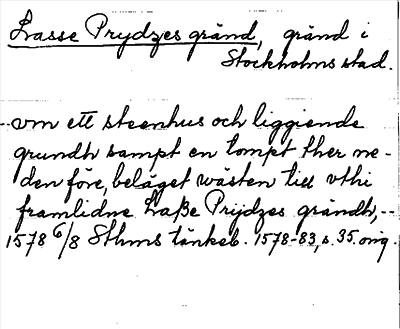 Lasse Prydzes gränd, gränd i
Stockholms stad.
--vm ett steenhus och liggiende
grundh sampt en tompt ther ne-
den före, beläget wästen till vthi
framlidne Laße Prijdzes grändh,--
1578 6/8 Sthms tänkeb. 1578-83, s. 35. orig.